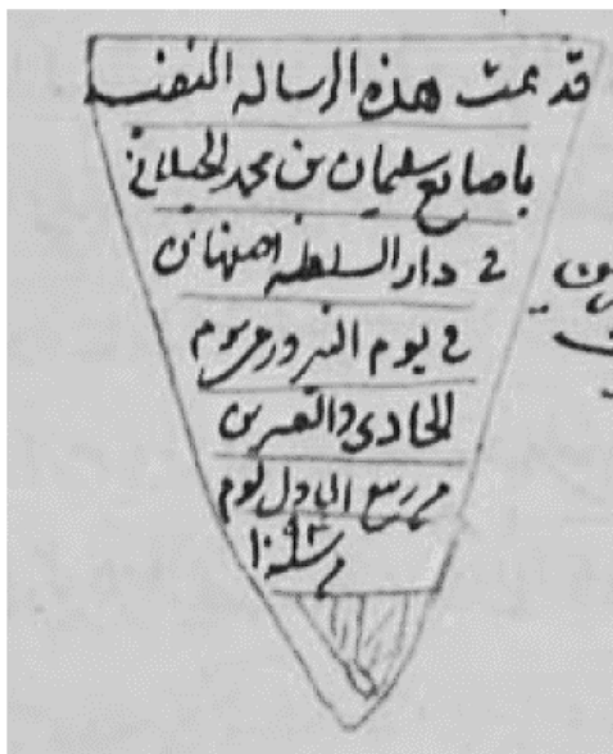 قد تمت هذه الرساله النفيسه
باصابع سليمان بن محمد الجيلاني
في دار السلطنه اصفهان
في يوم النيروز من يوم
الحادي والعشرين
من ربيع الاول
من سنه ١٠٩٣